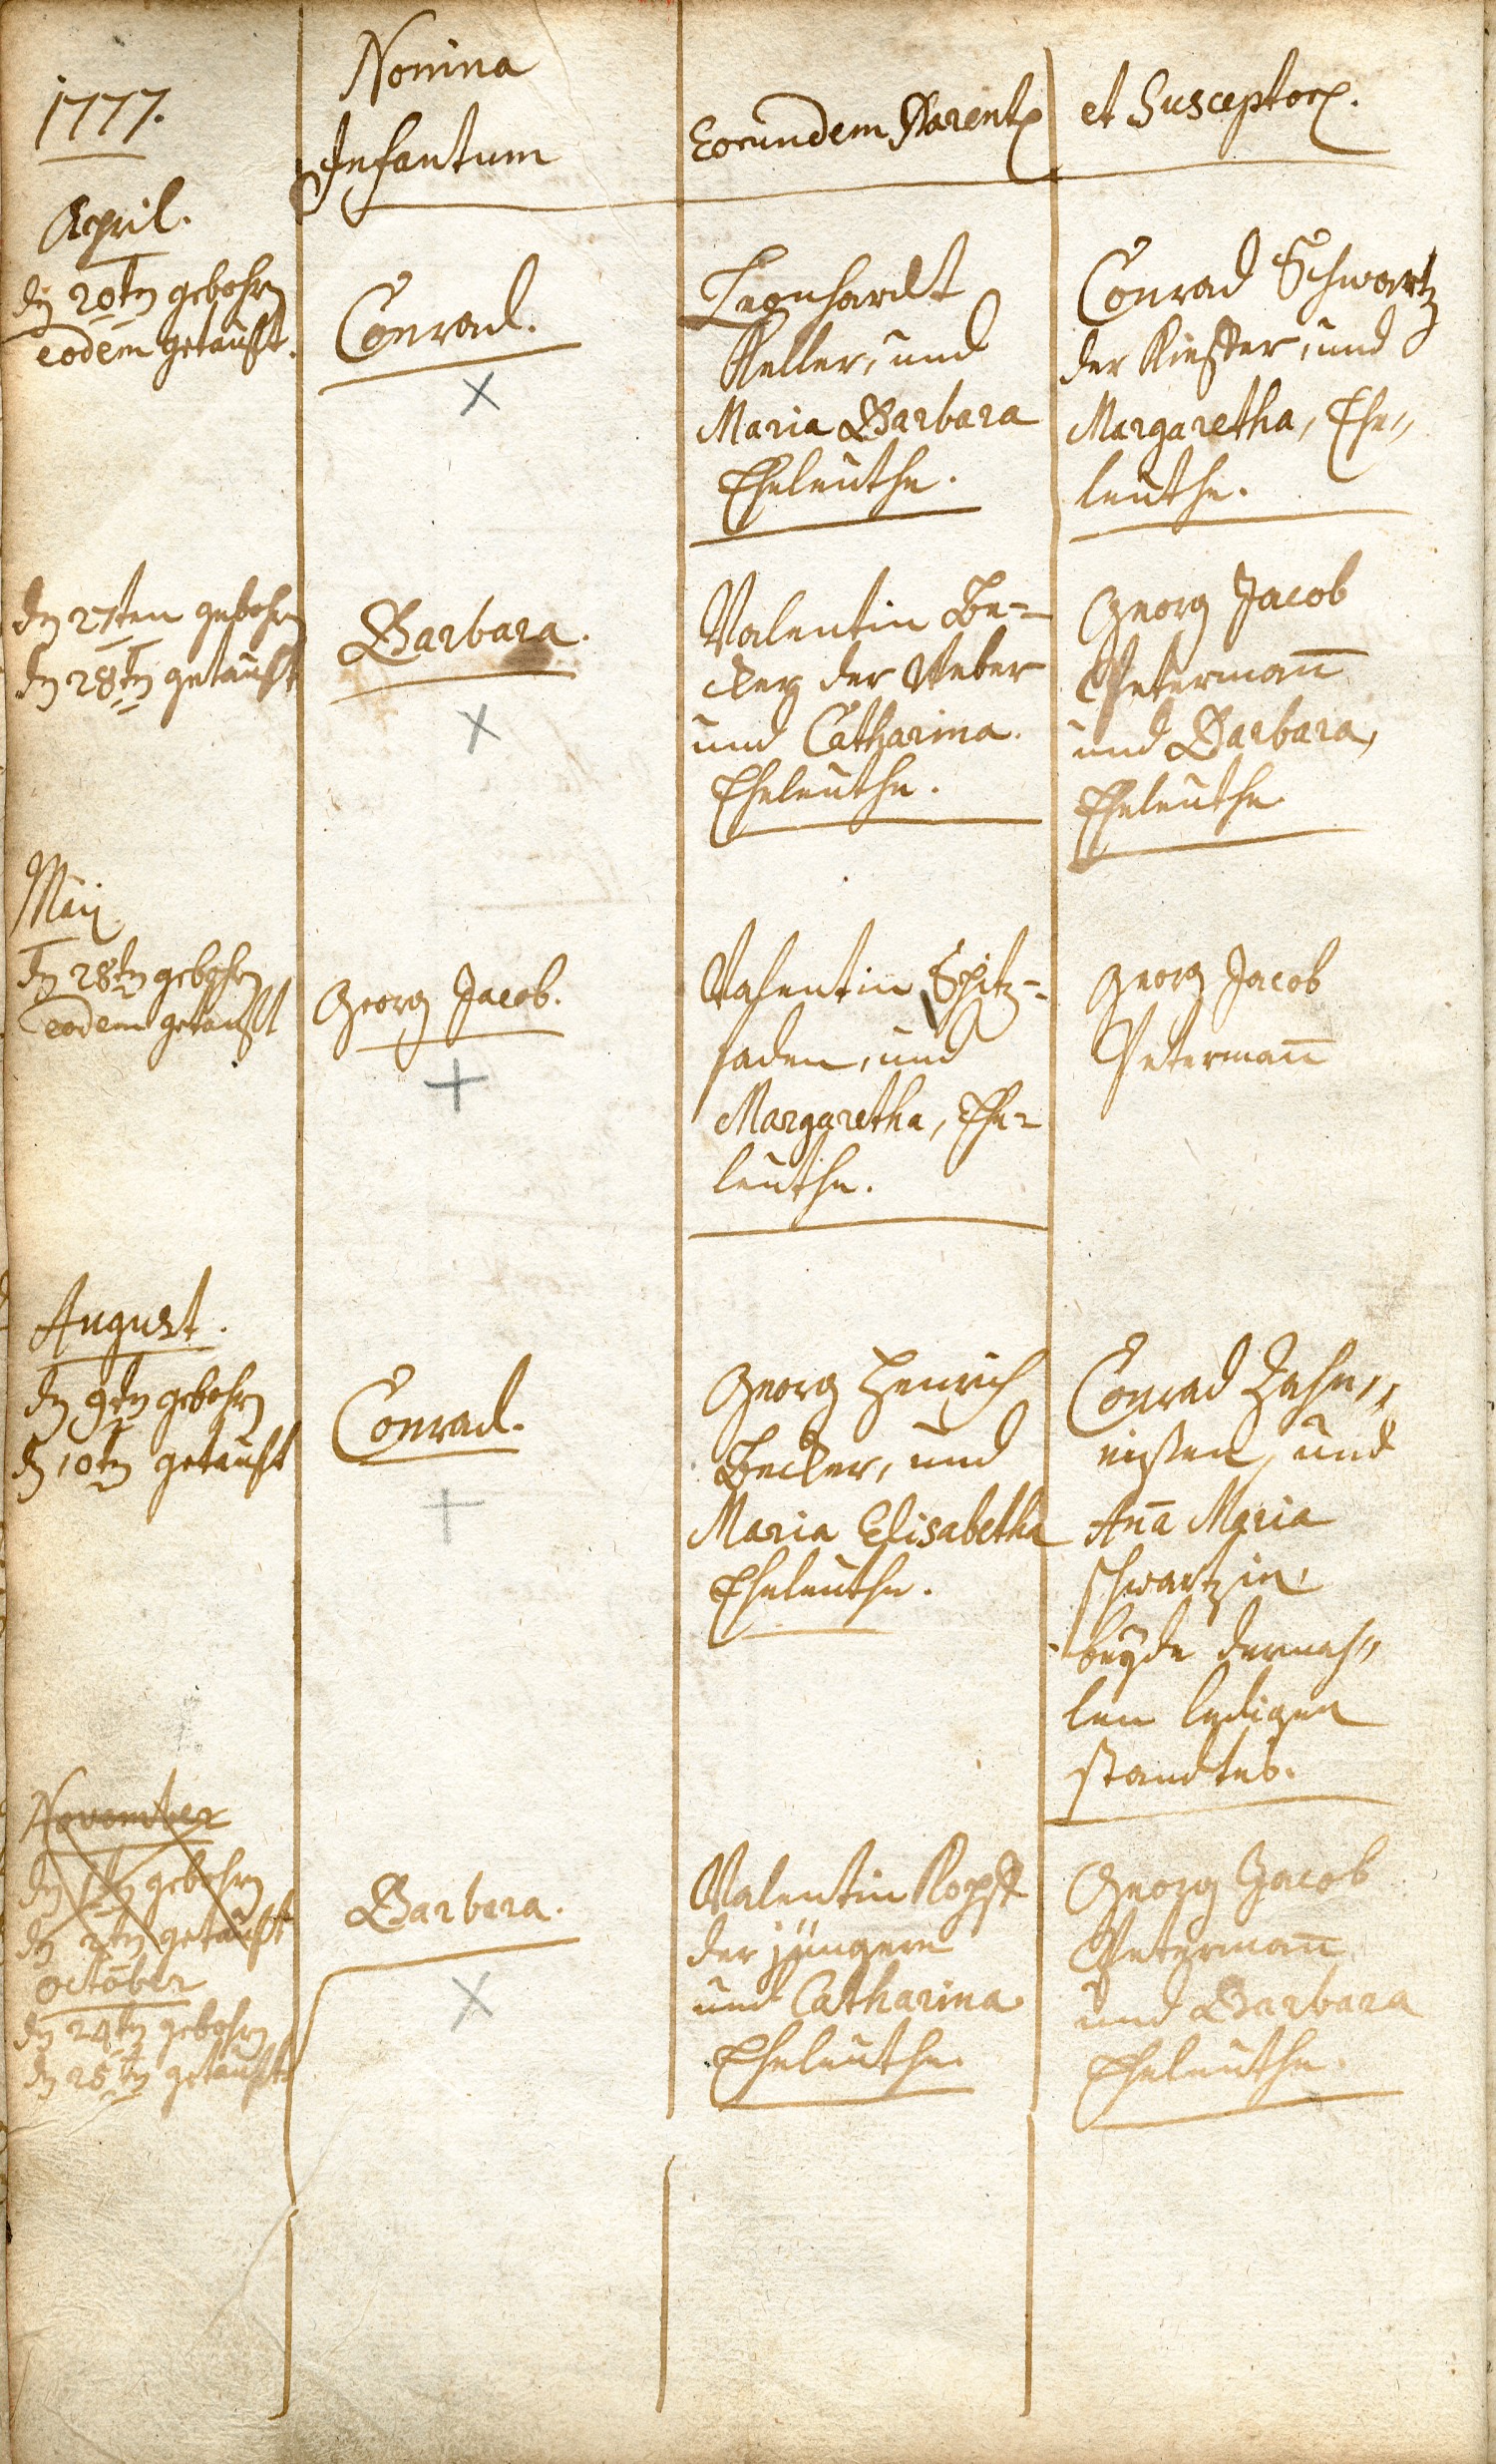 1777.
Nomina
Infantum
Eorundem Parent
et Susceptor.
April.
d 20tn gebohrn
eodem getaufft.
Conrad.
Leonhardt
Keller, und
Maria Barbara
Eheleuthe.
Conrad Schwartz
der Kieffer, und
Margaretha, Ehe„
leuthe.
dn 27ten gebohrn
dn 28tn getaufft
Barbara.
Valentin Be=
cker der Weber
und Catharina.
Eheleuthe.
Georg Jacob
Petermañ
und Barbara,
Eheleuthe
Maij
dn 28tn gebohrn
eodem getaufft
Georg Jacob.
Valentin Spitz=
faden, und
Margaretha, Ehe=
leuthe.
Georg Jacob
Petermañ
August.
dn 9tn gebohrn
d 10tn getaufft
Conrad.
Georg Henrich
Becker, und
Maria Elisabetha
Eheleuthe.
Conrad
und
Aña Maria
Schwartzin,
beyde dermah„
len ledigen
standtes.
November
dn 1tn gebohrn
dn 2tn getaufft
October
dn 24tn gebohrn
dn 25tn getaufft
Barbara.
Valentin
der jüngere
und Catharina
Eheleuthe.
Georg Jacob
Petermañ
und Barbara
Eheleuthe.